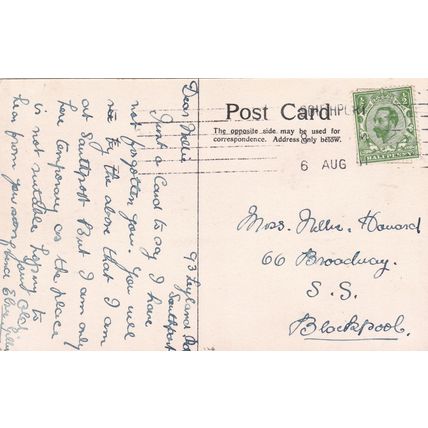 93 Leyland Rd
Southport
Dear Nellie
Just a Card to say I have
not forgotten you. You will
see by the above that I am
at Southport But I am only
here temporary as the place
is not suitable hoping to
hear from you soon
your old
Post Card
The opposite side may be used for
correspondence. Address only below.
SOUTHPORT
6 AUG
HALFPENNY
Miss. Nellie. Howard
66 Broadway.
S. S.
Blackpool.